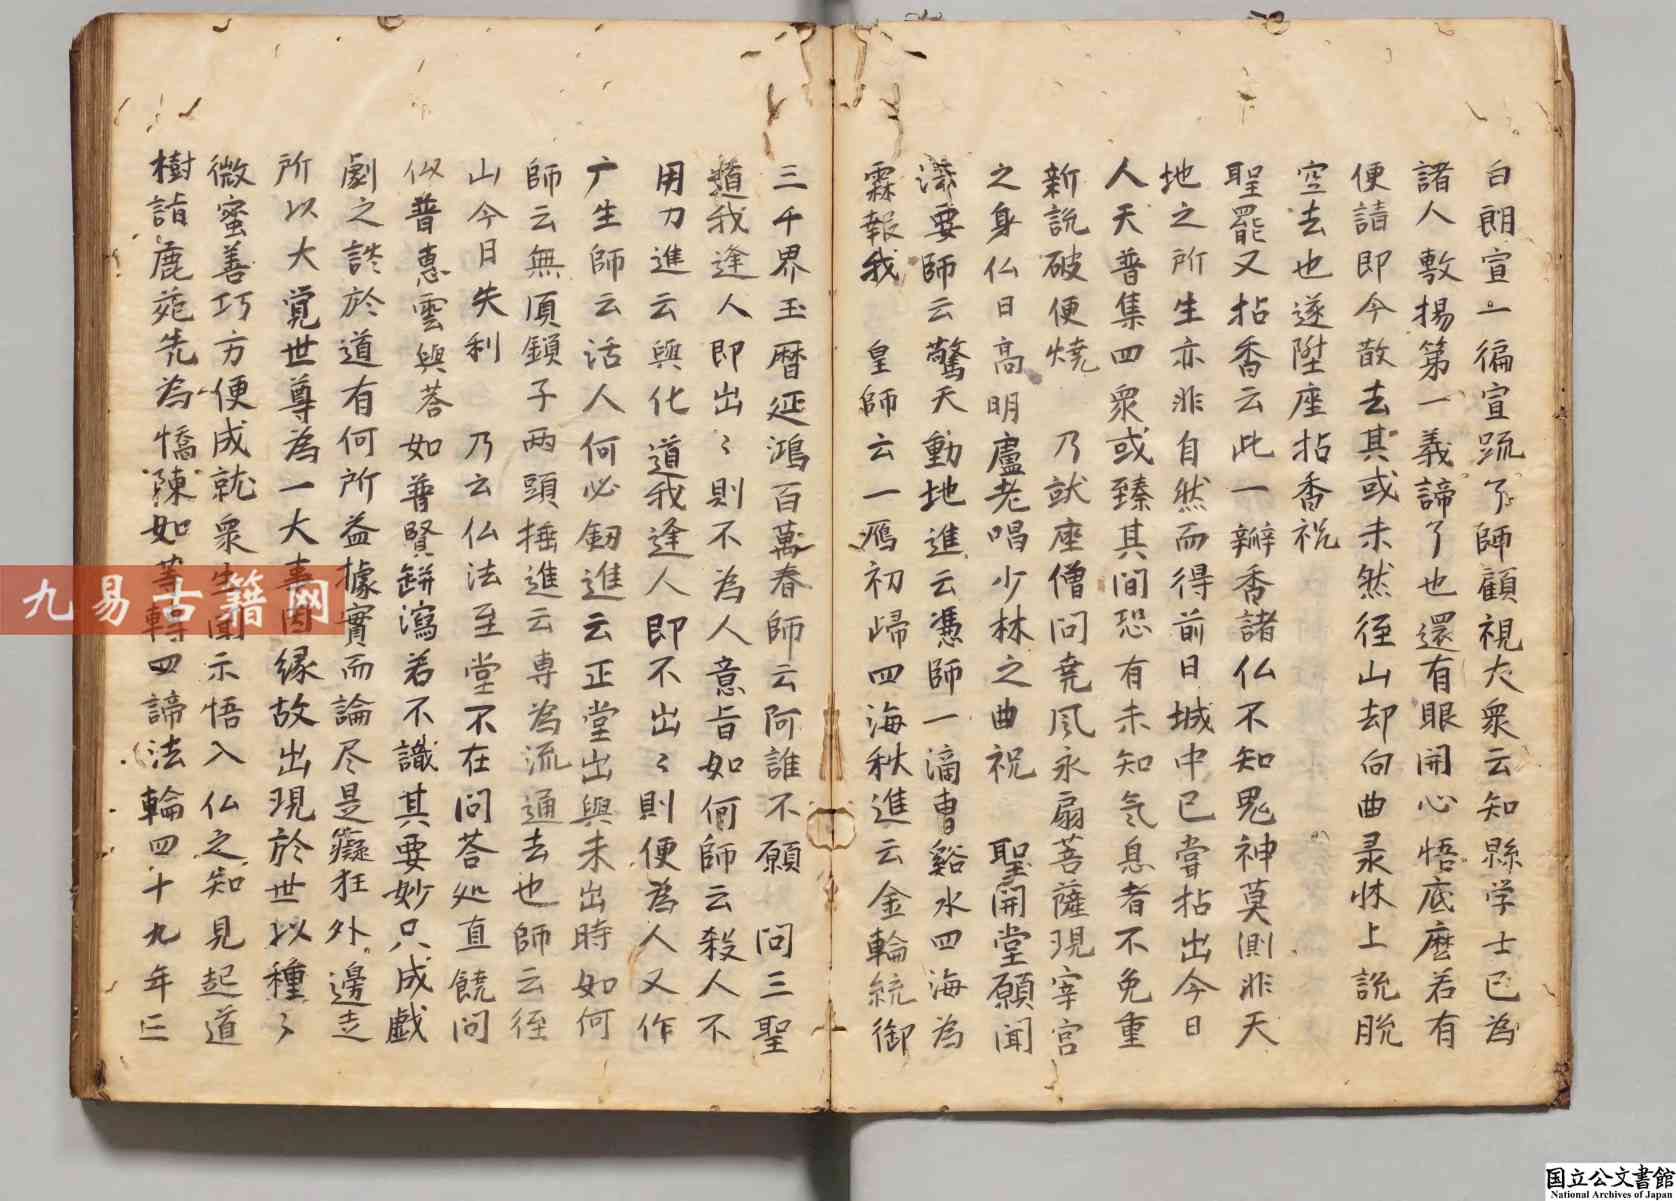 白朗宣一徧宣疏了師顧視大衆云知縣学士已為
諸人敷揚第一義諦了也還有眼開心悟底麽若有
便請即今散去其或未然徑山却向曲录牀上說脱
空去也遂陞座拈香祝
聖罷又拈香云此一瓣香諸仏不知鬼神莫測非天
地之所生亦非自然而得前日城中已甞拈出今日
人天普集四衆或臻其間恐有未知气息者不免重
新說破便燒　乃就座僧問堯風永扇菩薩現宰官
之身仏日高明盧老唱少林之曲祝　聖開堂願聞
法要師云驚天動地進云憑師一滴曹谿水四海為
霖報我　皇師云一鴈初歸四海秋進云金輪統御
三千界玉曆延鴻百萬春師云阿誰不願　問三聖
道我逢人即出〻則不為人意旨如何師云殺人不
用刀進云興化道我逢人即不出〻則便為人又作
广生師云活人何必劒進云正堂出與未出時如何
師云無須鎖子两頭揺進云専為流通去也師云徑
山今日失利　乃云仏法至堂不在問荅処直饒問
似普恵雲興荅如普賢缾瀉若不識其要妙只成戯
劇之談於道有何所益據實而論尽是癡狂外邊走
所以大覚世尊為一大事因緣故出現於世以種〻
微蜜善巧方便成就衆生開示悟入仏之知見起道
樹詣鹿苑先為憍陳如等轉四諦法輪四十九年三
九易古籍网
国立公文書館
National Archives of Japan